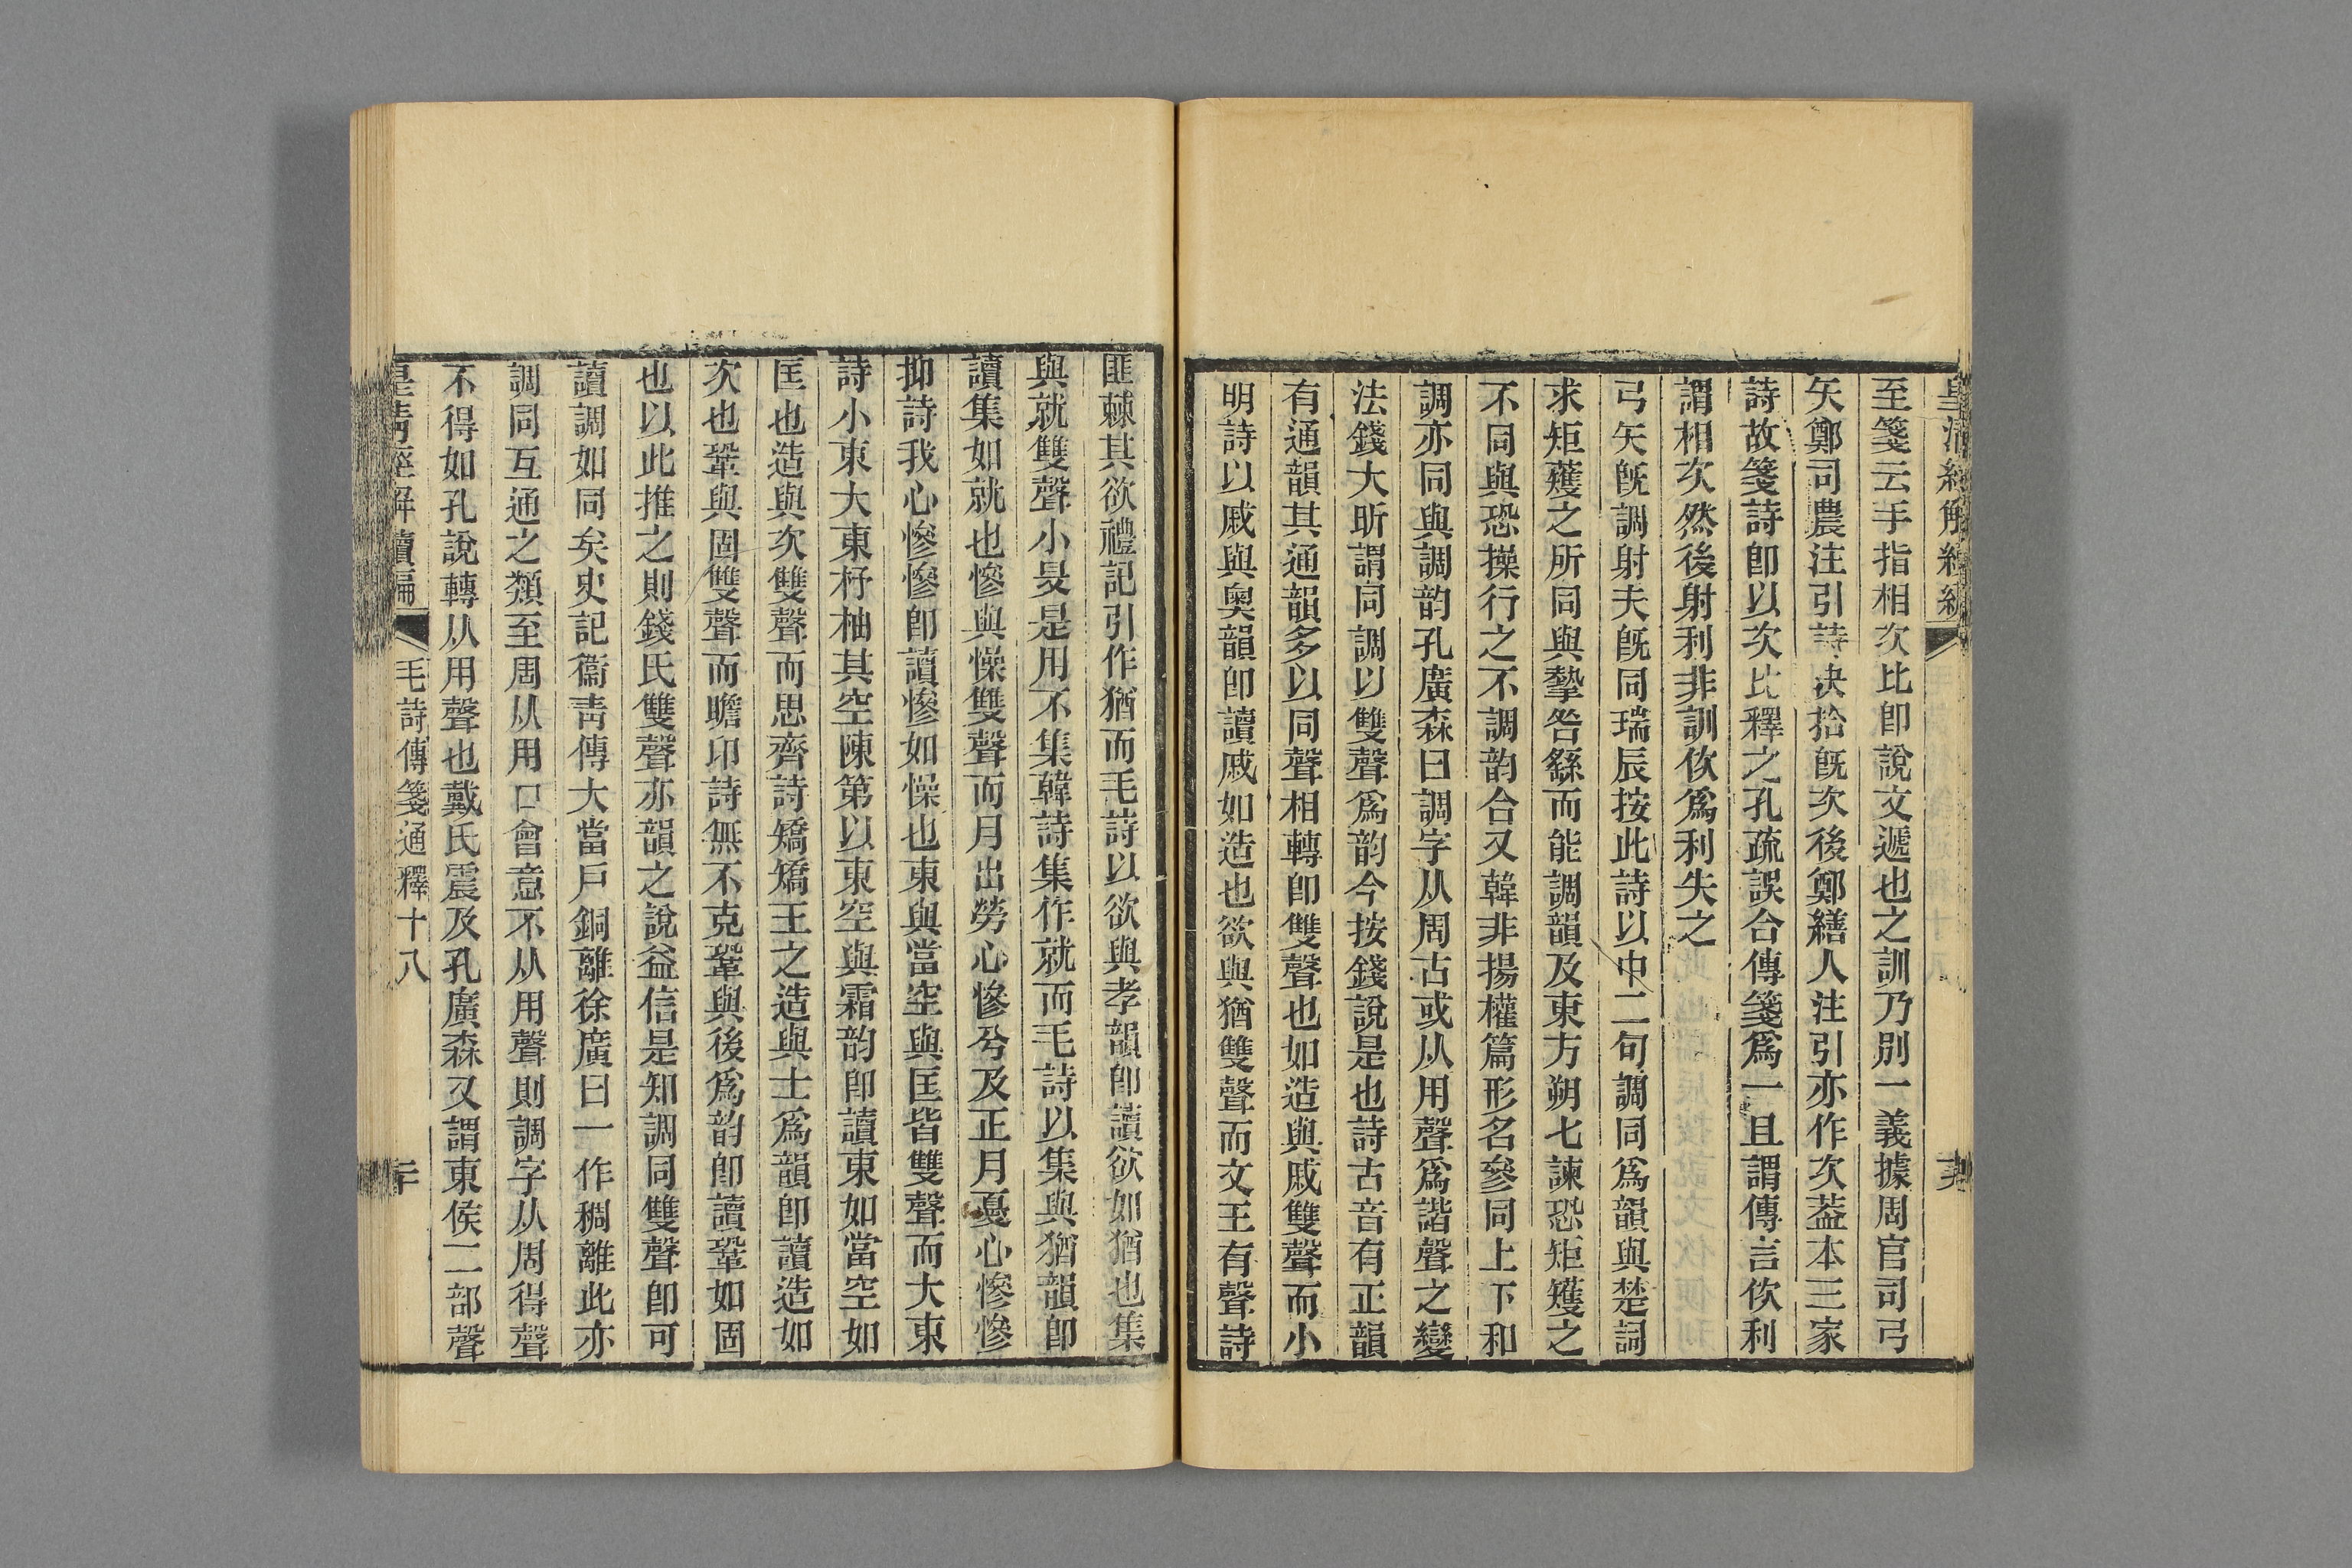 至箋云手指相次比卽說文遞也之訓乃別一義據周官司弓
矢鄭司農注引詩決拾旣次後鄭繕人注引亦作次葢本三家
詩故箋詩卽以次比釋之孔疏誤合傳箋爲一且謂傳言佽利
謂相次然後射利非訓佽爲利失之
弓矢旣調射夫旣同瑞辰按此詩以中二句調同爲韻與楚詞
求矩蒦之所同與摯咎繇而能調韻及東方朔七諫恐矩矱之
不同與恐操行之不調韵合又韓非揚權篇形名參同上下和
調亦同與調韵孔廣森曰調字从周古或从用聲爲諧聲之變
法錢大昕謂同調以雙聲爲韵今按錢說是也詩古音有正韻
有通韻其通韻多以同聲相轉卽雙聲也如造與戚雙聲而小
明詩以戚與奥韻卽讀戚如造也欲與猶雙聲而文王有聲詩
匪棘其欲禮記引作猶而毛詩以欲與孝韻卽讀欲如猶也集
與就雙聲小旻是用不集韓詩集作就而毛詩以集與猶韻卽
讀集如就也慘與懆雙聲而月出勞心慘兮及正月憂心慘慘
抑詩我心慘慘卽讀慘如懆也東與當空與匡皆雙聲而大東
詩小東大東杼柚其空陳第以東空與霜韵卽讀東如當空如
匡也造與次雙聲而思齊詩矯矯王之造與士爲韻卽讀造如
次也鞏與固雙聲而瞻卬詩無不克鞏與後爲韵卽讀鞏如固
也以此推之則錢氏雙聲亦韻之說益信是知調同雙聲卽可
讀調如同矣史記衞靑傳大當戶銅離徐廣曰一作稠離此亦
調同互通之類至周从用口會意不从用聲則調字从周得聲
不得如孔說轉从用聲也戴氏震及孔廣森又謂東侯二部聲
皇淸經解續編 毛詩傳箋通釋十八 二十